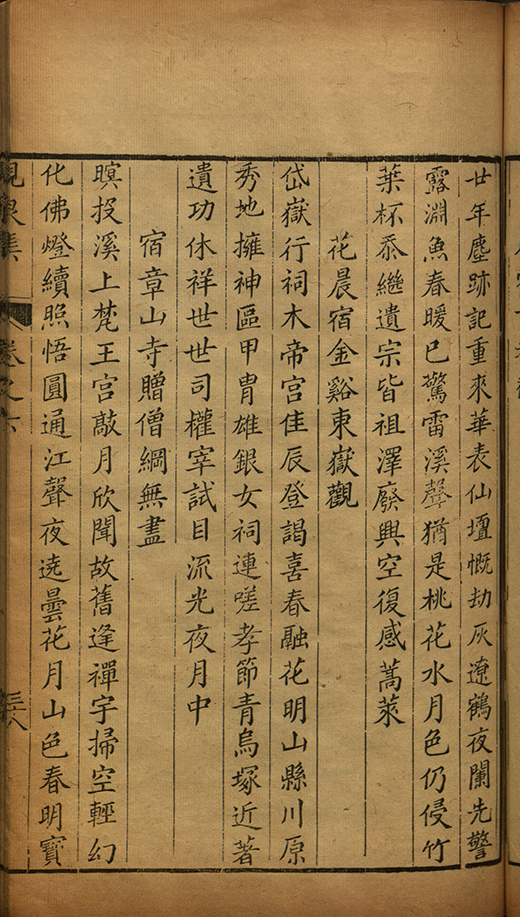 廿年塵跡記重來華表仙壇慨劫灰遼鶴夜闌先警
露淵魚春暖已驚雷溪聲猶是桃花水月色仍侵竹
葉杯忝繼遺宗皆祖澤廢興空復感蒿萊
花晨宿金谿東嶽觀
岱嶽行祠木帝宮佳辰登謁喜春融花明山縣川原
秀地擁神區甲胄雄銀女祠連嗟孝節青烏塚近著
遺功休祥世世司權宰試目流光夜月中
宿章山寺贈僧綱無盡
暝投溪上梵王宮敲月欣聞故舊逢禪宇掃空輕幻
化佛燈續照悟圓通江聲夜遶曇花月山色春明寶
峴泉集
卷之六
三六